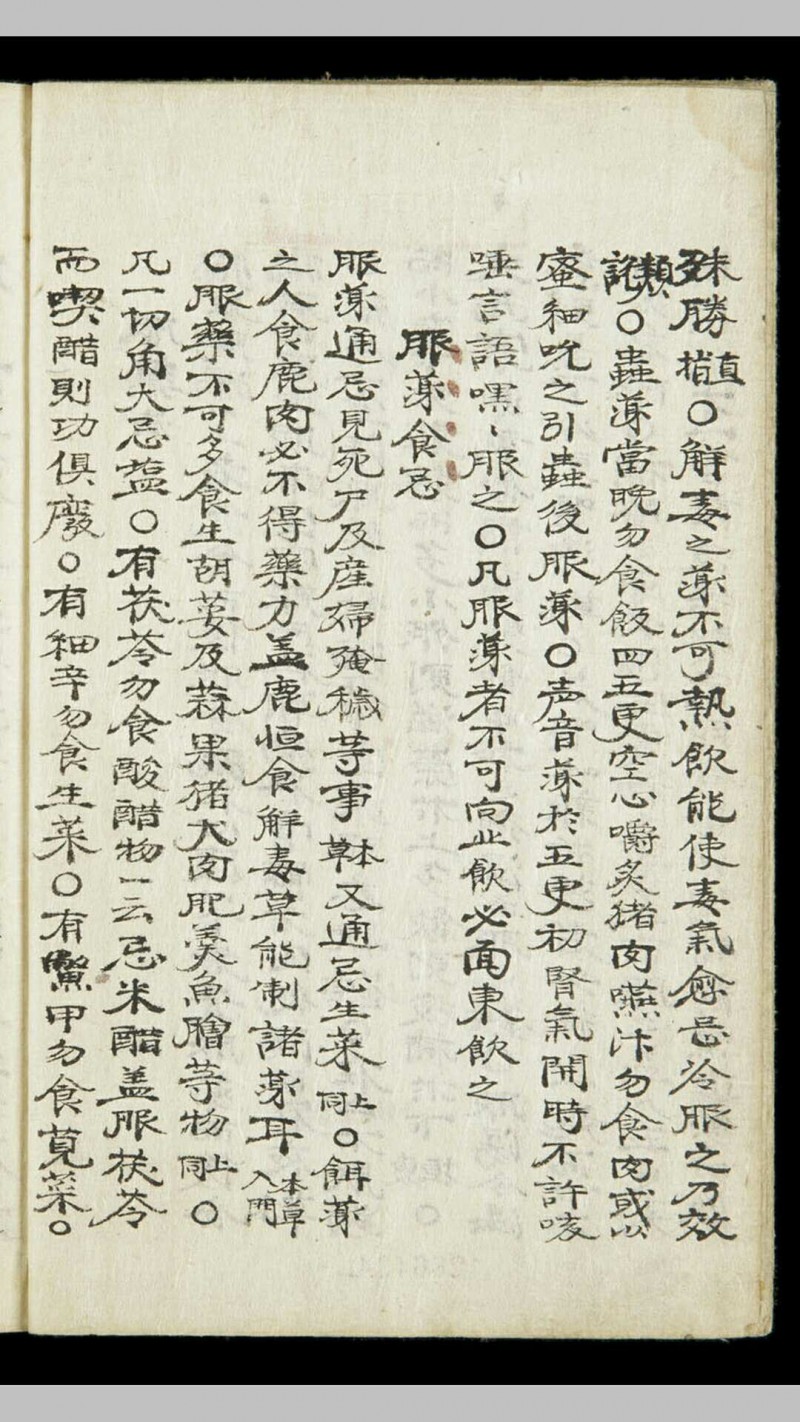 殊勝 直指 ○解毒之薬不可熱飮能使毒氣愈甚冷服之乃效
類聚○蟲薬當晩勿食飯四五更空心嚼炙猪肉嚥汁勿食肉或以
蜜細吮之引蟲後服薬○声音薬於五更初腎氣開時不許咳
唾言語嘿〻服之○凡服薬者不可向北飮必面東飮之
服薬食忌
服薬通忌見死尸及産婦殗穢等事 本草 又通忌生菜 同上 ○餌薬
之人食鹿肉必不得藥力盖鹿恒食解毒草能制諸薬耳 本草 入門
○服藥不可多食生胡荽及蒜果猪犬肉肥羹魚膾等物 同上 ○
凡一切角大忌盐○有茯苓勿食酸醋物一云忌米醋盖服茯苓
而喫醋則功俱廢○有細辛勿食生菜○有鱉甲勿食莧菜○